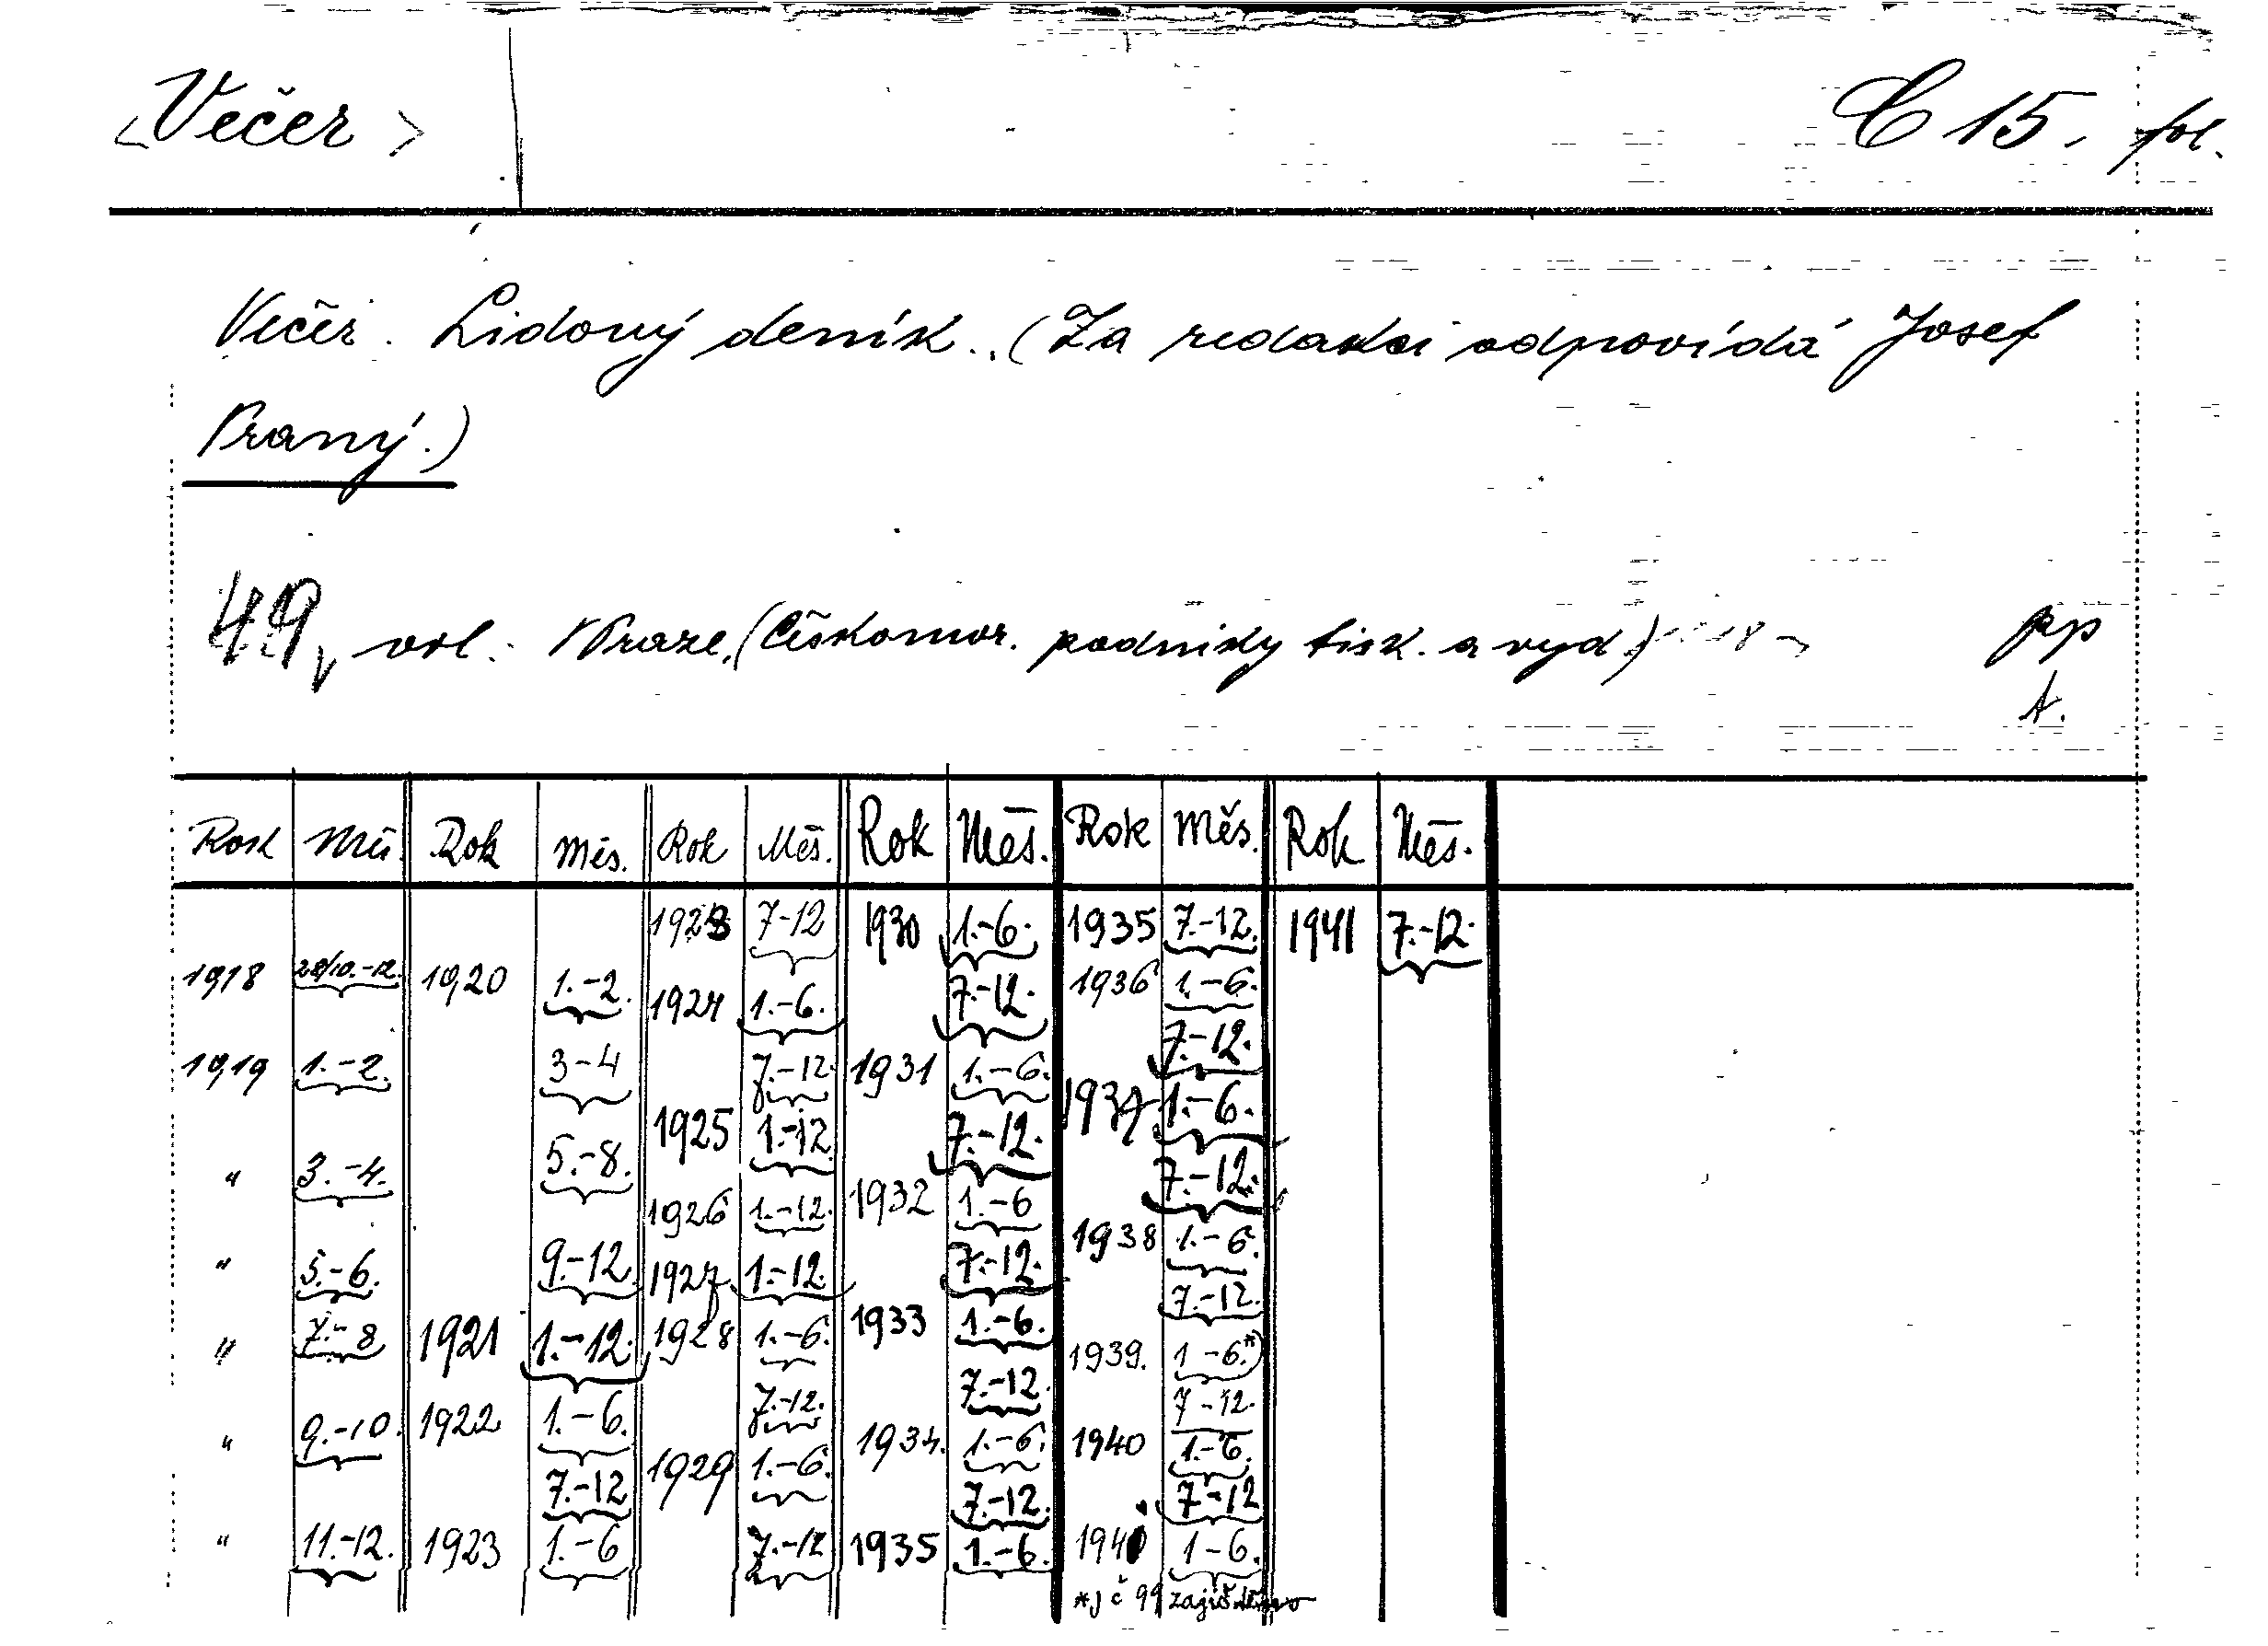 <Večer>
C 15. fol.
Večer. Lidový deník. (Za redakci odpovídá Josef
Vraný.)
49, vol. V Praze, (Českomor. podniky tisk. a vyd.) 18
pp
t.
Rok Měs. Rok Měs. Rok Měs. Rok Měs. Rok Měs. Rok Měs.
1923 7-12 1930 1.-6. 1935 7.-12. 1941 7.-12.
1918 28/10.-12. 1920 1.-2. 1924 1.-6. 7.-12. 1936 1.-6.
1919 1.-2. 3-4 7.-12. 1931 1.-6. 7.-12.
1925 1.-12 7.-12. 1937 1.-6.
" 3.-4. 5.-8. 1926 1.-12. 1932 1.-6 7.-12.
" 5.-6. 9.-12. 1927 1.-12. 7.-12. 1938 1.-6.
7.-12.
" 7.-8 1921 1.-12. 1928 1.-6. 1933 1.-6. 1939. 1-6.*)
7.-12. 7.-12. 7-12.
" 9.-10. 1922 1.-6. 1929 1.-6. 1934. 1.-6. 1940 1.-6.
7.-12 7.-12. 7-12
" 11.-12. 1923 1.-6 7.-12 1935 1.-6. 1941 1-6.
*) č 99 zajištěno